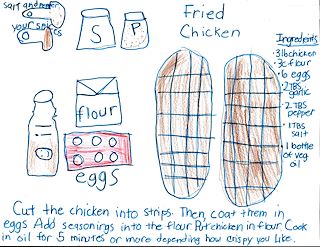 salt and pepper
your spices
S
P
Fried
Chicken
flour
eggs
Ingredients
• 3 lb chicken
• 3c flour
• 6 eggs
• 2 TBS
garlic
• 2 TBS
pepper
• 1 TBS
salt
• 1 bottle
of veg.
oil
Cut the chicken into strips. Then, coat them in
eggs. Add seasonings into the flour. Put chicken in flour. Cook
in oil for 5 minutes or more depending how crispy you like.